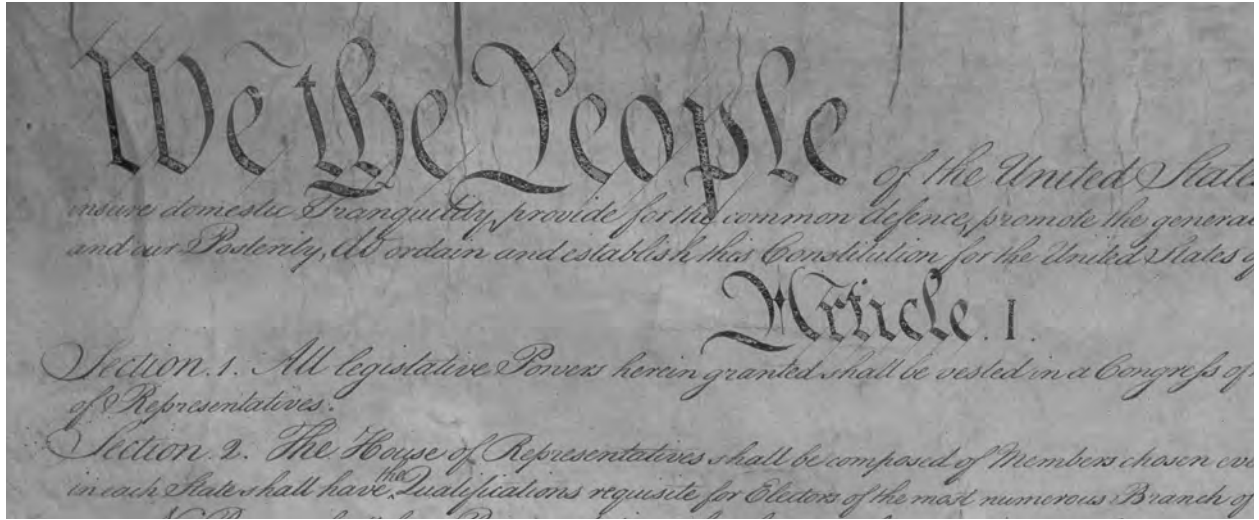 We the People of the United State
insure domestic Tranquility, provide for the common defence, promote the genera
and our Posterity, do ordain and establish this Constitution for the United States o
Article. I.
Section. 1. All legislative Powers herein granted shall be vested in a Congress of
of Representatives.
Section. 2. The House of Representatives shall be composed of Members chosen eve
in each State shall have the Qualifications requisite for Electors of the most numerous Branch of